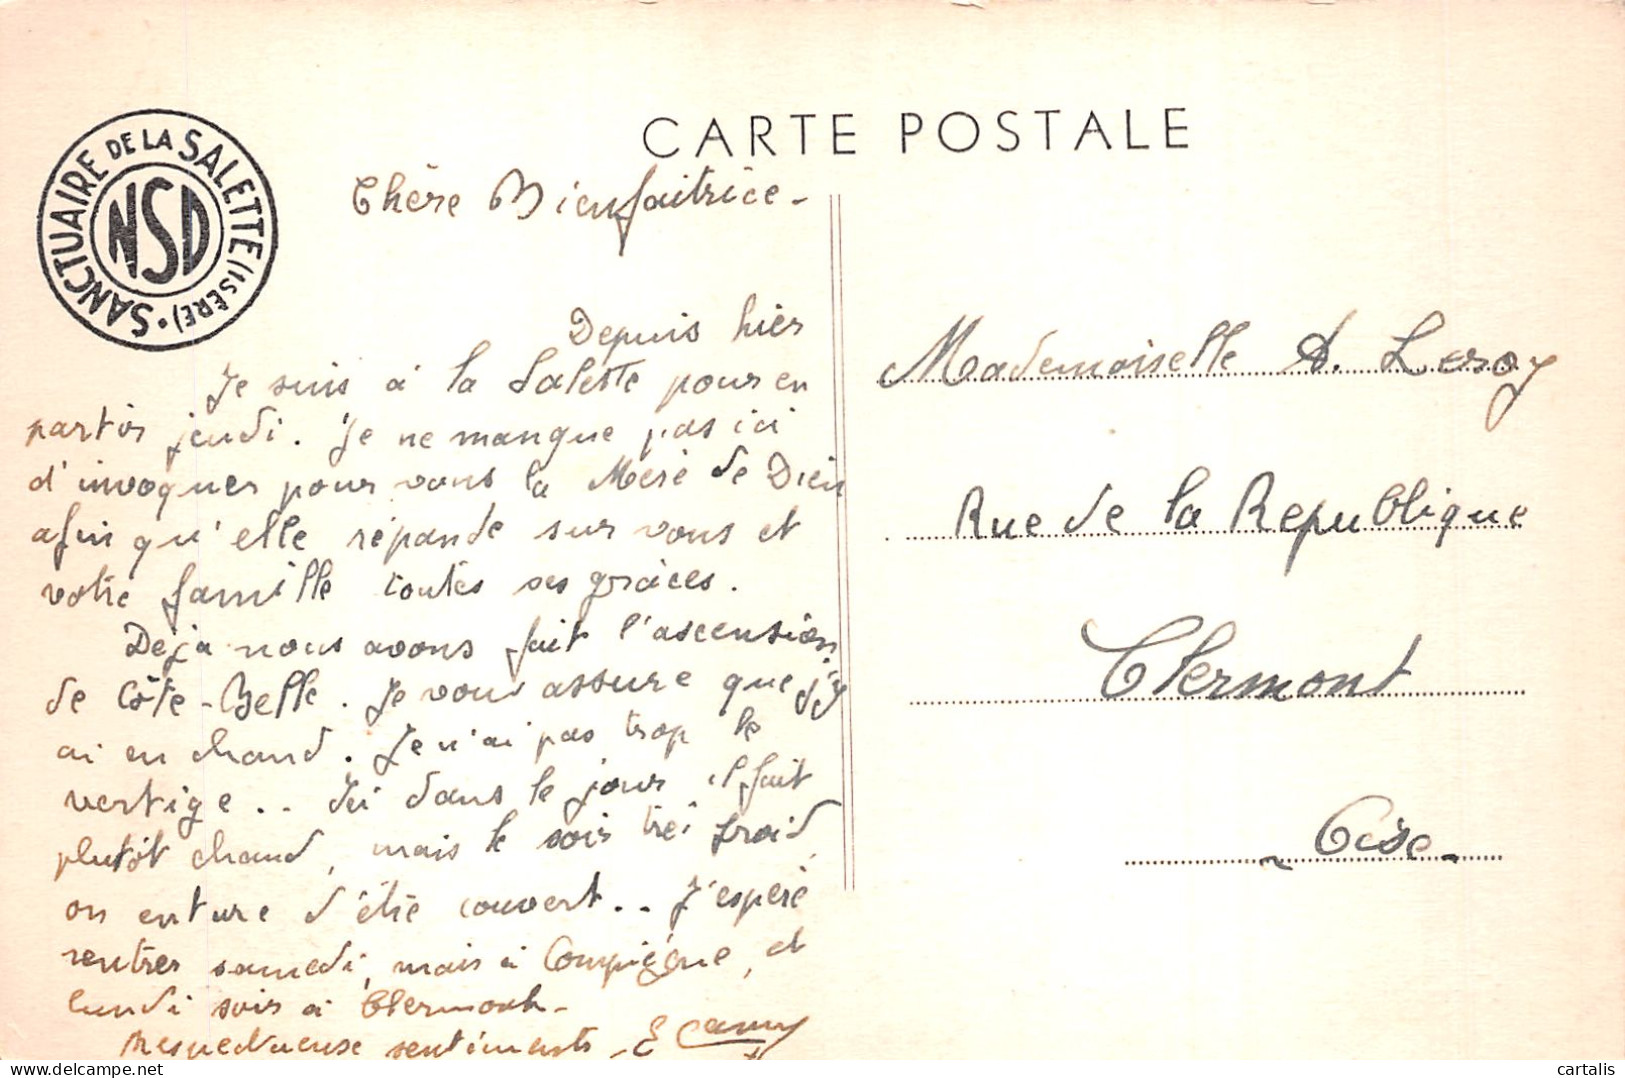 CARTE POSTALE
SANCTUAIRE DE LA SALETTE (ISÈRE) •
NSD
Chère Bienfaitrice -
Depuis hier
Je suis à la Salette pour en
partir jeudi. Je ne manque pas ici
d'invoquer pour vous la Mère de Dieu
afin qu'elle répande sur vous et
votre famille toutes ses grâces.
Déjà nous avons fait l'ascension
de Côte-Belle. Je vous assure que j'y
ai eu chaud. Je n'ai pas trop le
vertige.. Ici dans le jour il fait
plutôt chaud, mais le soir très froid,
on d'être couvert.. J'espère
rentrer samedi, mais à Compiègne, et
lundi soir à Clermont-
Respectueuse sentiments - E
Mademoiselle A. Leroy
Rue de la Republique
Clermont
Oise-
cartalis